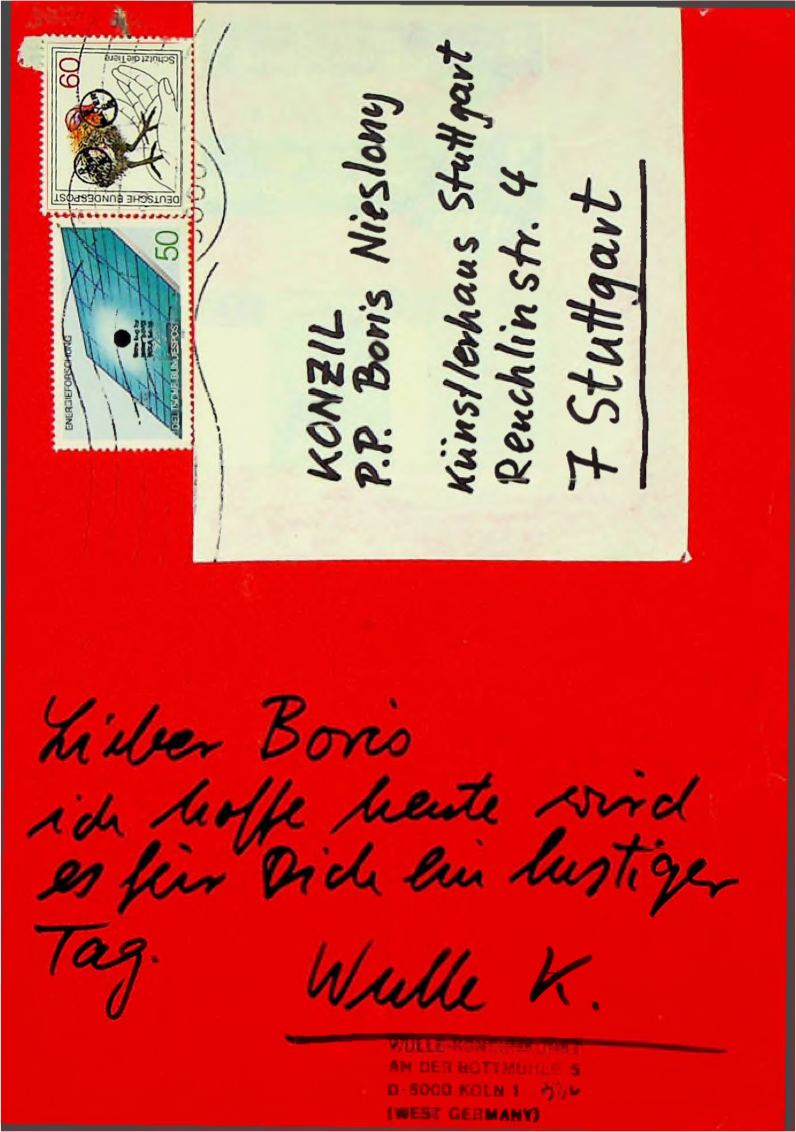 Schützt die Tiere
60
DEUTSCHE BUNDESPOST
50
ENERGIEFORSCHUNG
DEUTSCHE BUNDESPOST
KONZIL
P.P. Boris Nieslony
Künstlerhaus Stuttgart
Reuchlinstr. 4
7 Stuttgart
Lieber Boris
ich hoffe heute wird
es für Dich ein lustiger
Tag.
Wulle K.
WULLE-KONSUMKUNST
AN DER BOTTMÜHLE 5
D-5000 KÖLN 1
(WEST GERMANY)